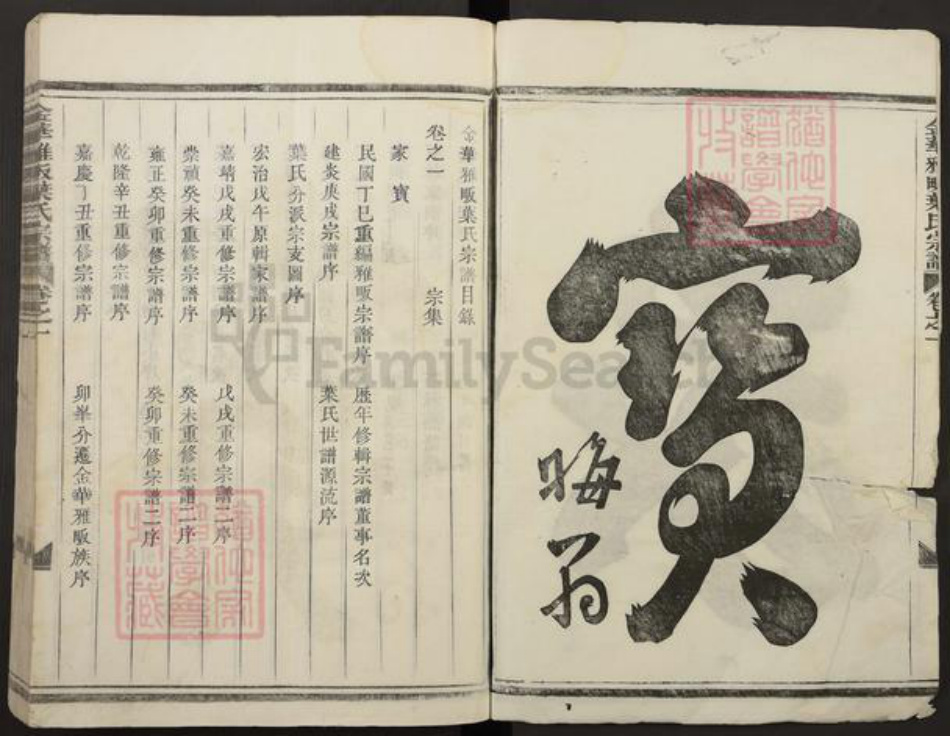 金華雅畈葉氏宗譜 卷之一
寶
晦翁
金華雅畈葉氏宗譜目錄
卷之一 宗集
家寶
民國丁巳重編雅畈宗譜序 歷年修輯宗譜董事名次
建炎庚戌宗譜序 葉氏世譜源流序
葉氏分派宗支圖序
宏治戊午原輯家譜序
嘉靖戊戌重修宗譜序 戊戌重修宗譜二序
崇禎癸未重修宗譜序 癸未重修宗譜二序
雍正癸卯重修宗譜序 癸卯重修宗譜二序
乾隆辛丑重修宗譜序
嘉慶丁丑重修宗譜序 卯峯分遷金華雅畈族序
金華雅畈葉氏宗譜 卷之一
FamilySearch